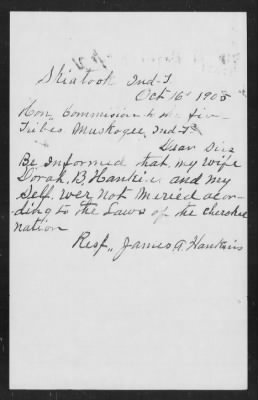 Skiatook Ind-T
Oct 16 1905
Hon, Commission to the five
Tribes Muskogee, Ind-T
Dear Sirs
Be Informed that my wife
Dorah, B, Hankins and my
Self, wer not Meried acor-
ding to the Laws of the Cherokee
nation
Resp,, James A. Hankins